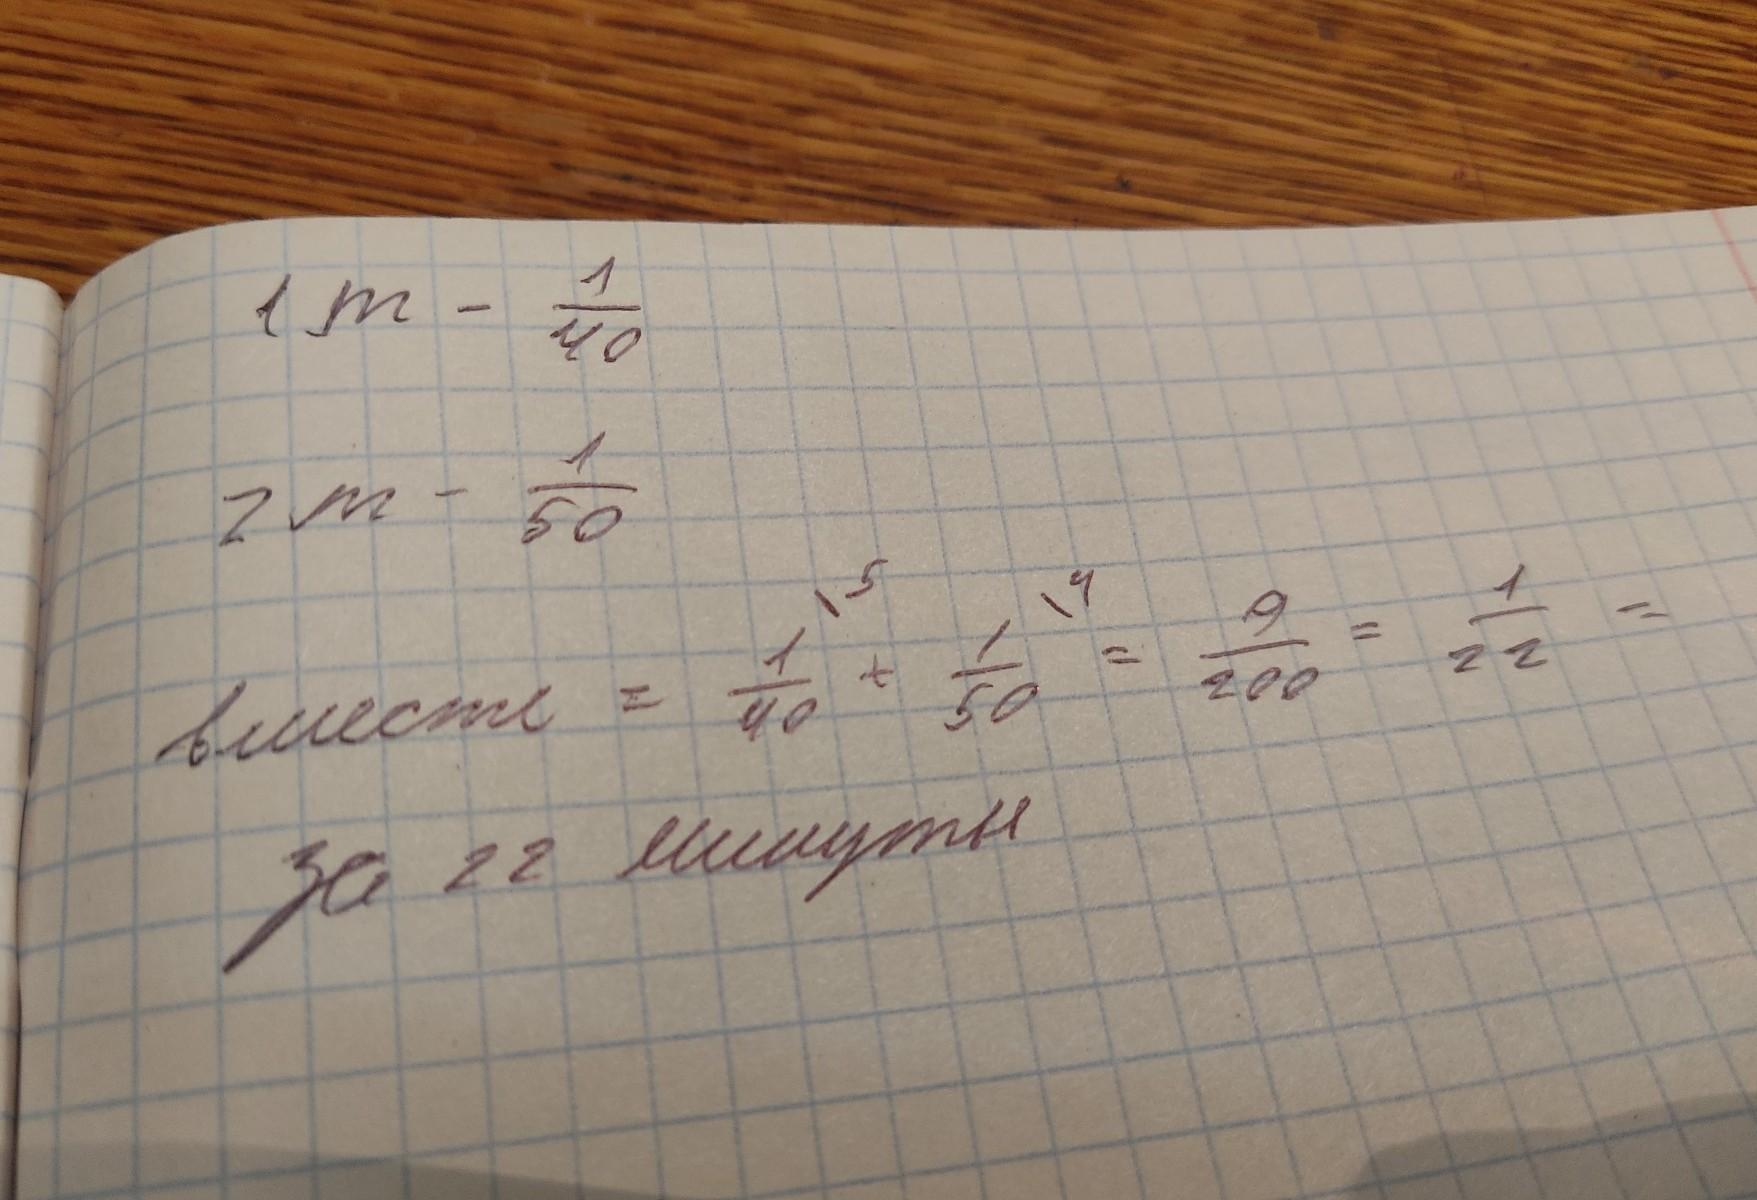 1 т - 1/40
2 т - 1/50
вместе = 1/40 \5 + 1/50 \4 = 9/200 = 1/22 =
за 22 минуты